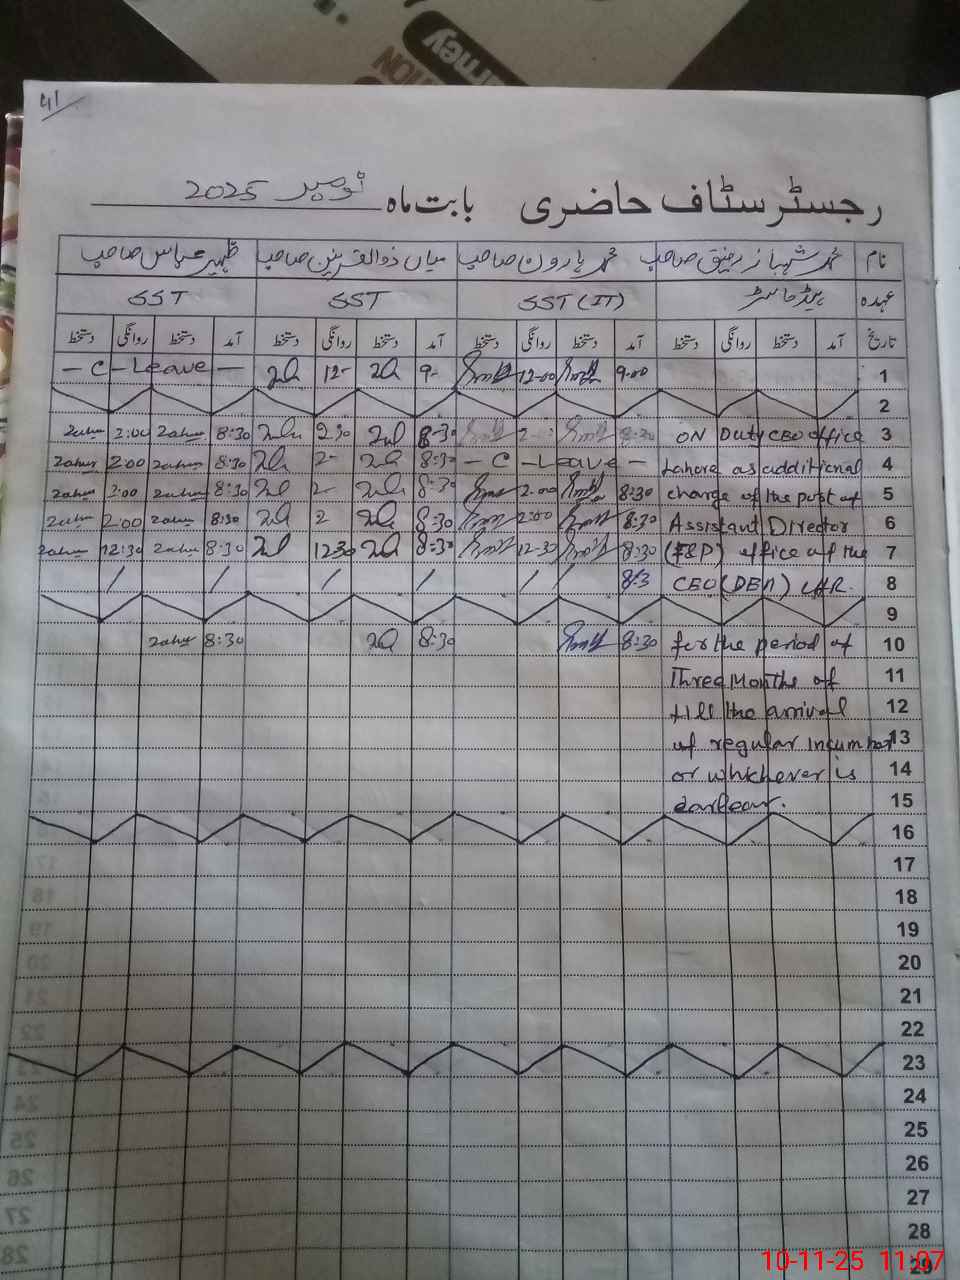 rney
TION
41
رجسٹر سٹاف حاضری بابت ماہ نومبر 2025
نام محمد شہباز رفیق صاحب محمد ہارون صاحب میاں ذوالقرنین صاحب ظہیر عباس صاحب
عہدہ ہیڈ ماسٹر SST (IT) SST SST
تاریخ آمد دستخط روانگی دستخط آمد دستخط روانگی دستخط آمد دستخط روانگی دستخط آمد دستخط روانگی دستخط
1 9.00 12.00 9- 12- - C - Leave -
2
3 ON Duty CEO office 8:30 2-:: 8:30 2:30 8:30 2:00
4 Lahore as additional - C - Leave - 8:30 2- 8:30 2:00
5 charge of the post of 8:30 2:00 8:30 2- 8:30 2:00
6 Assistant Director 8:30 2:00 8:30 2 8:30 2:00
7 (F&P) office of the 8:30 12:30 8:30 1230 8:30 12:30
8 CEO (DEA) LHR. 8:3 / / / / / /
9
10 for the period of 8:30 8:30 8:30
11 Three Months of
12 till the arrival
13 of regular incumber
14 or whichever is
15
16
17
18
19
20
21
22
23
24
25
26
27
28
29
10-11-25 11:07